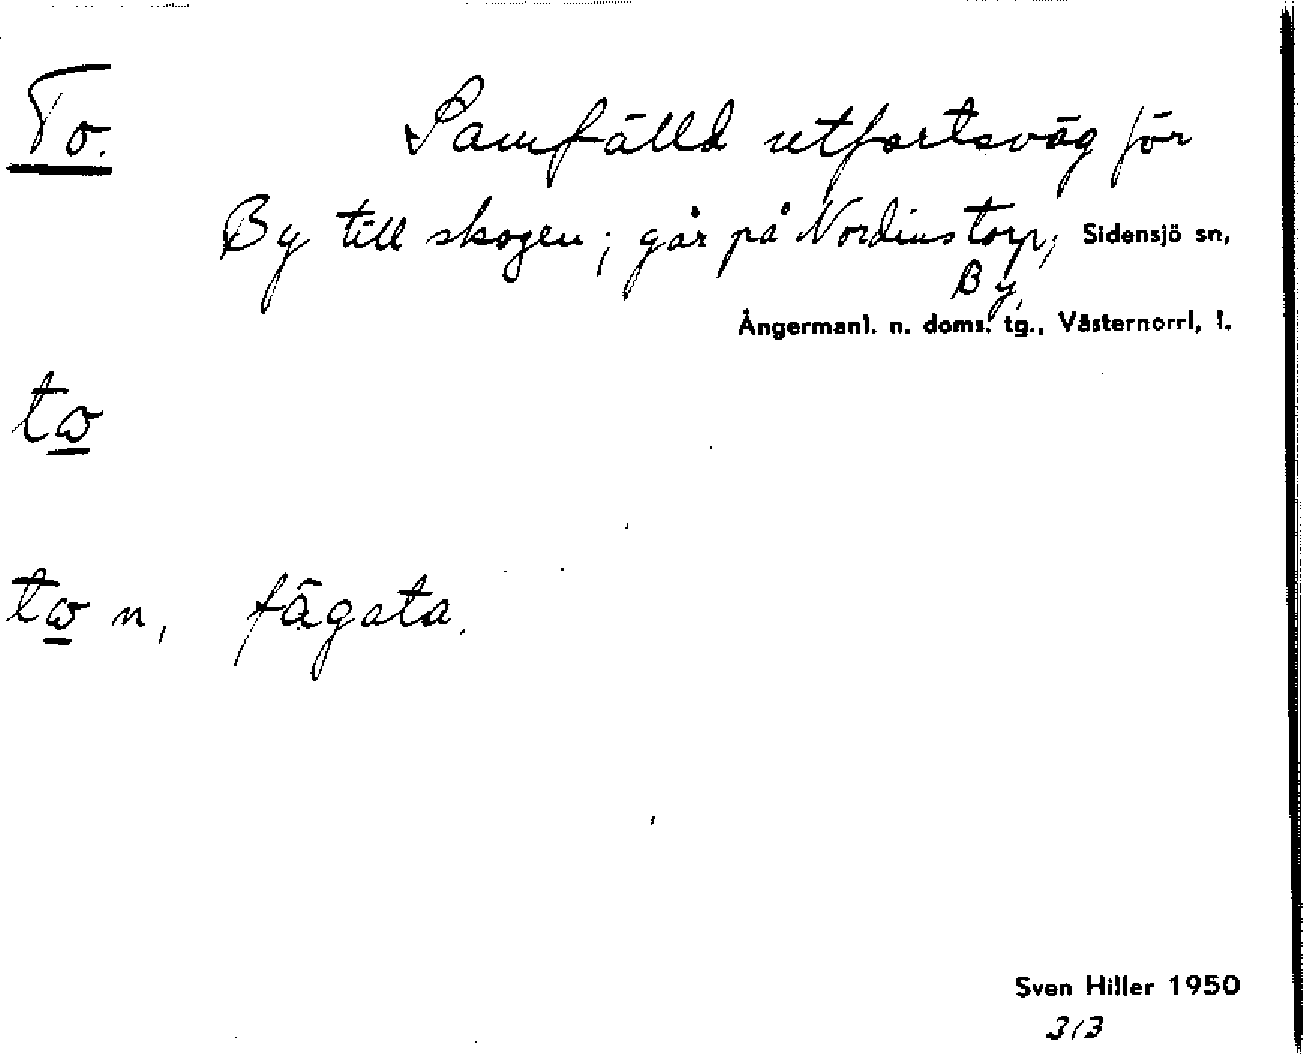 To.
Samfälld utfartsväg för
By till skogen; går på Nordins torp, Sidensjö sn,
By,
Ångermanl. n. doms. tg., Västernorrl. l.
tω
tω n, fägata.
Sven Hiller 1950
313